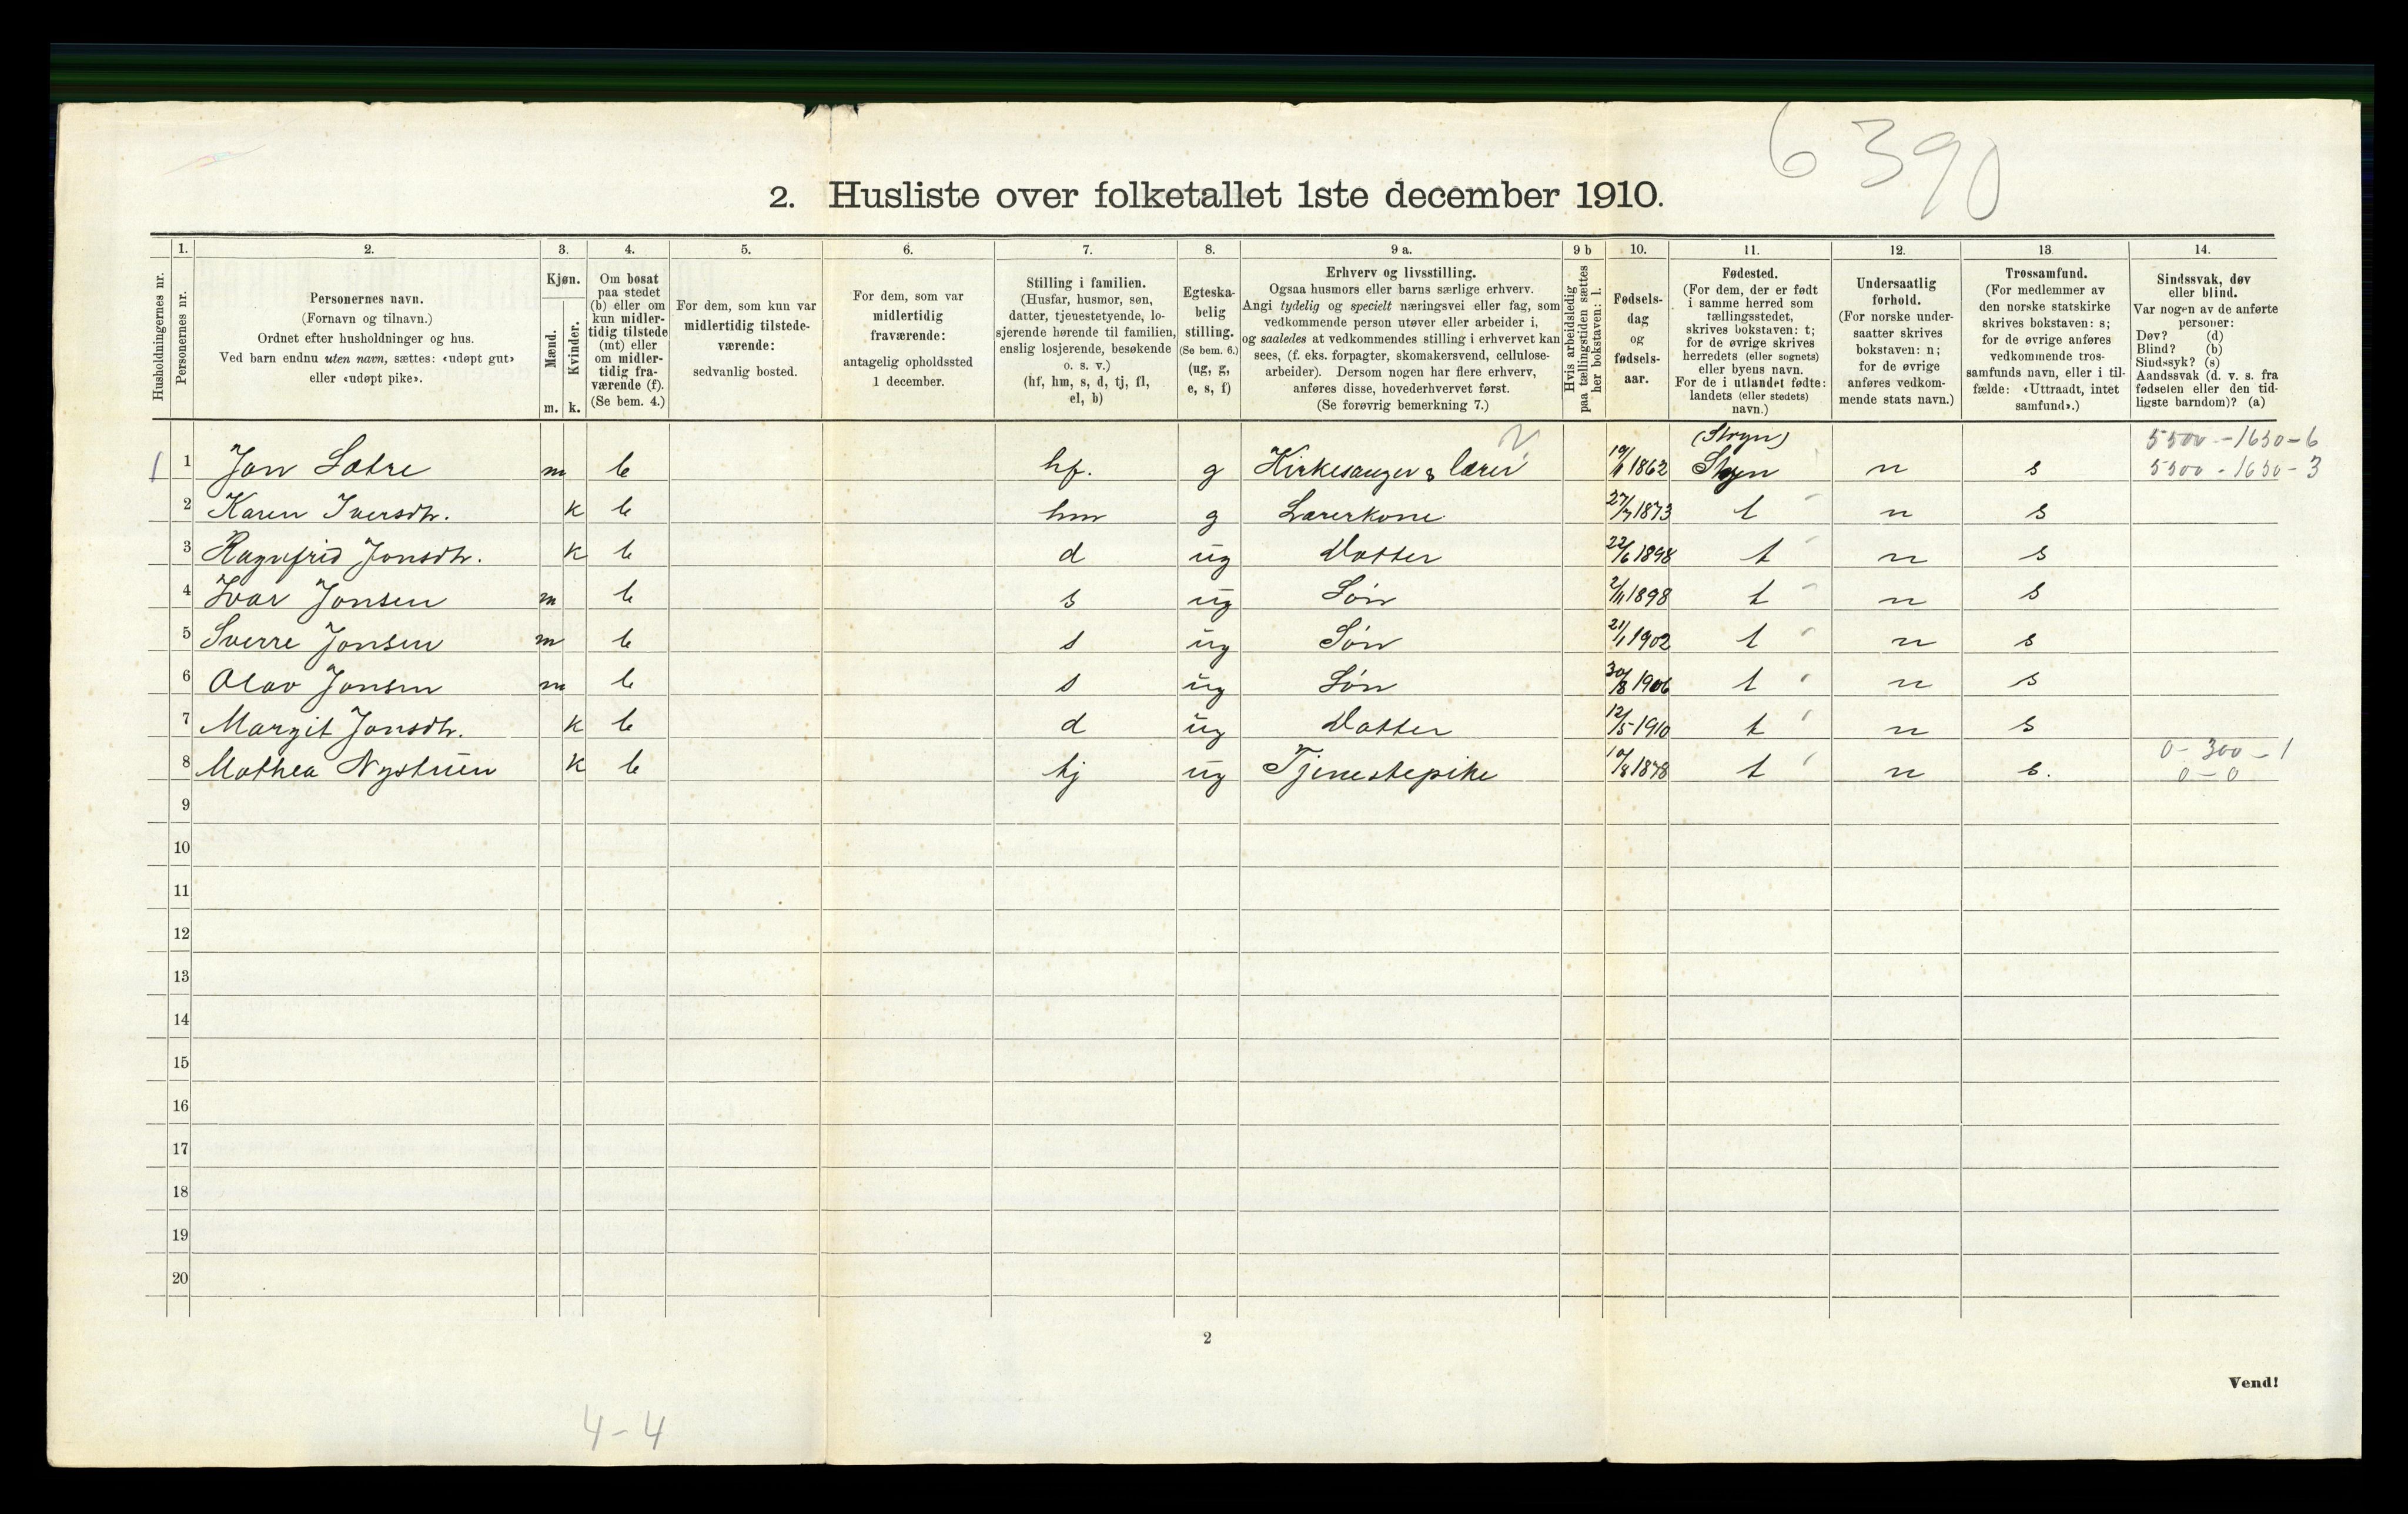 6390
2. Husliste over folketallet 1ste december 1910.
Husholdningernes nr.
1.
Personernes nr.
2.
Personernes navn.
(Fornavn og tilnavn.)
Ordnet efter husholdninger og hus.
Ved barn endnu uten navn, sættes: «udøpt gut»
eller «udøpt pike».
3.
Kjøn.
Mænd.
Kvinder.
m. k.
4.
Om bosat
paa stedet
(b) eller om
kun midler-
tidig tilstede
(mt) eller
om midler-
tidig fra-
værende (f).
(Se bem. 4.)
5.
For dem, som kun var
midlertidig tilstede-
værende:
sedvanlig bosted.
6.
For dem, som var
midlertidig
fraværende:
antagelig opholdssted
1 december.
7.
Stilling i familien.
(Husfar, husmor, søn,
datter, tjenestetyende, lo-
sjerende hørende til familien,
enslig losjerende, besøkende
o. s. v.)
(hf, hm, s, d, tj, fl,
el, b)
8.
Egteska-
belig
stilling.
(Se bem. 6.)
(ug, g,
e, s, f)
9 a.
Erhverv og livsstilling.
Ogsaa husmors eller barns særlige erhverv.
Angi tydelig og specielt næringsvei eller fag, som
vedkommende person utøver eller arbeider i,
og saaledes at vedkommendes stilling i erhvervet kan
sees, (f. eks. forpagter, skomakersvend, cellulose-
arbeider). Dersom nogen har flere erhverv,
anføres disse, hovederhvervet først.
(Se forøvrig bemerkning 7.)
9 b
Hvis arbeidsledig
paa tællingstiden sættes
her bokstaven: l.
10.
Fødsels-
dag
og
fødsels-
aar.
11.
Fødested.
(For dem, der er født
i samme herred som
tællingsstedet,
skrives bokstaven: t;
for de øvrige skrives
herredets (eller sognets)
eller byens navn.
For de i utlandet fødte:
landets (eller stedets)
navn.)
12.
Undersaatlig
forhold.
(For norske under-
saatter skrives
bokstaven: n;
for de øvrige
anføres vedkom-
mende stats navn.)
13
Trossamfund.
(For medlemmer av
den norske statskirke
skrives bokstaven: s;
for de øvrige anføres
vedkommende tros-
samfunds navn, eller i til-
fælde: «Uttraadt, intet
samfund».)
14.
Sindssvak, døv
eller blind.
Var nogen av de anførte
personer:
Døv? (d)
Blind? (b)
Sindssyk? (s)
Aandssvak (d. v. s. fra
fødselen eller den tid-
ligste barndom)? (a)
(Stryn) 5500 - 1650 - 6
1 1 Jon Sætre m b hf. g Kirkesanger & lærer 19/11 1862 Stryn n s 5500 - 1650 - 3
2 Karen Iversdtr. k b hm g Lærerkone 27/7 1873 t n s
3 Ragnfrid Jonsdtr. k b d ug Datter 22/6 1898 t n s
4 Ivar Jonsen m b s ug Søn 2/11 1898 t n s
5 Sverre Jonsen m b s ug Søn 21/1 1902 t n s
6 Olav Jonsen m b s ug Søn 30/8 1906 t n s
7 Margit Jonsdtr. k b d ug Datter 12/5 1910 t n s
0 - 300 - 1
8 Mathea Nystuen k b tj ug Tjenestepike 10/8 1878 t n s. 0 - 0
9
10
11
12
13
14
15
16
17
18
19
20
2
Vend!
4-4